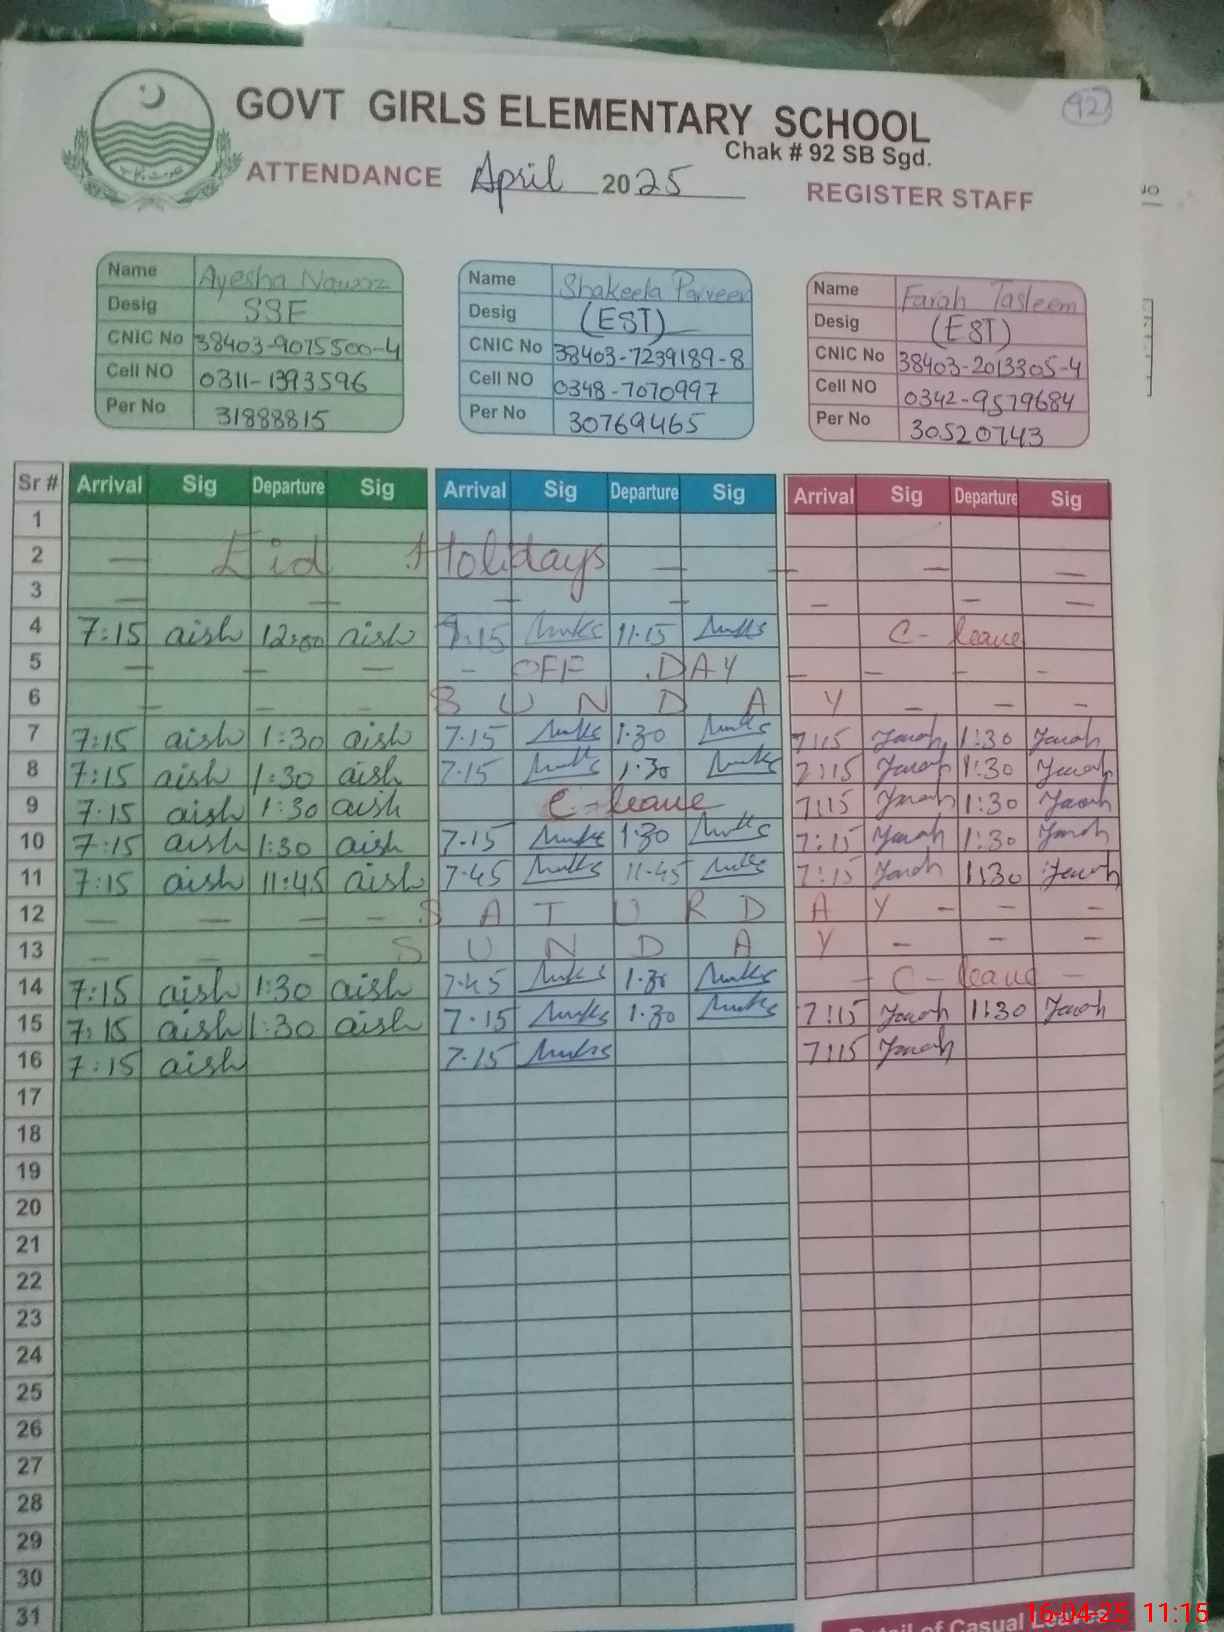 GOVT GIRLS ELEMENTARY SCHOOL
92
Chak # 92 SB Sgd.
ATTENDANCE April 2025 REGISTER STAFF
Name Ayesha Nawaz
Desig SSE
CNIC No 38403-9075500-4
Cell NO 0311-1393596
Per No 31888815
Name Shakeela Parveen
Desig (EST)
CNIC No 38403-7239189-8
Cell NO 0348-7070997
Per No 30769465
Name Farah Tasleem
Desig (EST)
CNIC No 38403-2013305-4
Cell NO 0342-9579684
Per No 30520743
Sr # Arrival Sig Departure Sig Arrival Sig Departure Sig Arrival Sig Departure Sig
1
2 — Eid Holidays — — — —
3 — — — — — — —
4 7:15 aish 12:00 aish 7:15 11.15 C- leave
5 — — — - OFF DAY — - - -
6 — — - S U N D A Y — — —
7 7:15 aish 1:30 aish 7.15 1.30 7:15 Farah 1:30 Farah
8 7:15 aish 1:30 aish 7.15 1.30 7:15 Farah 1:30 Farah
9 7.15 aish 1:30 aish C-leave 7:15 Farah 1:30 Farah
10 7:15 aish 1:30 aish 7.15 1.30 7:15 Farah 1:30 Farah
11 7:15 aish 11:45 aish 7.45 11.45 7:15 Farah 1:30 Farah
12 — — — - S A T U R D A Y - - -
13 — — - S U N D A Y - - -
14 7:15 aish 1:30 aish 7.45 1.30 - C- leave -
15 7:15 aish 1:30 aish 7.15 1.30 7:15 Farah 1:30 Farah
16 7:15 aish 7.15 7:15 Farah
17
18
19
20
21
22
23
24
25
26
27
28
29
30
31
Detail of Casual Leaves
16-04-25 11:15